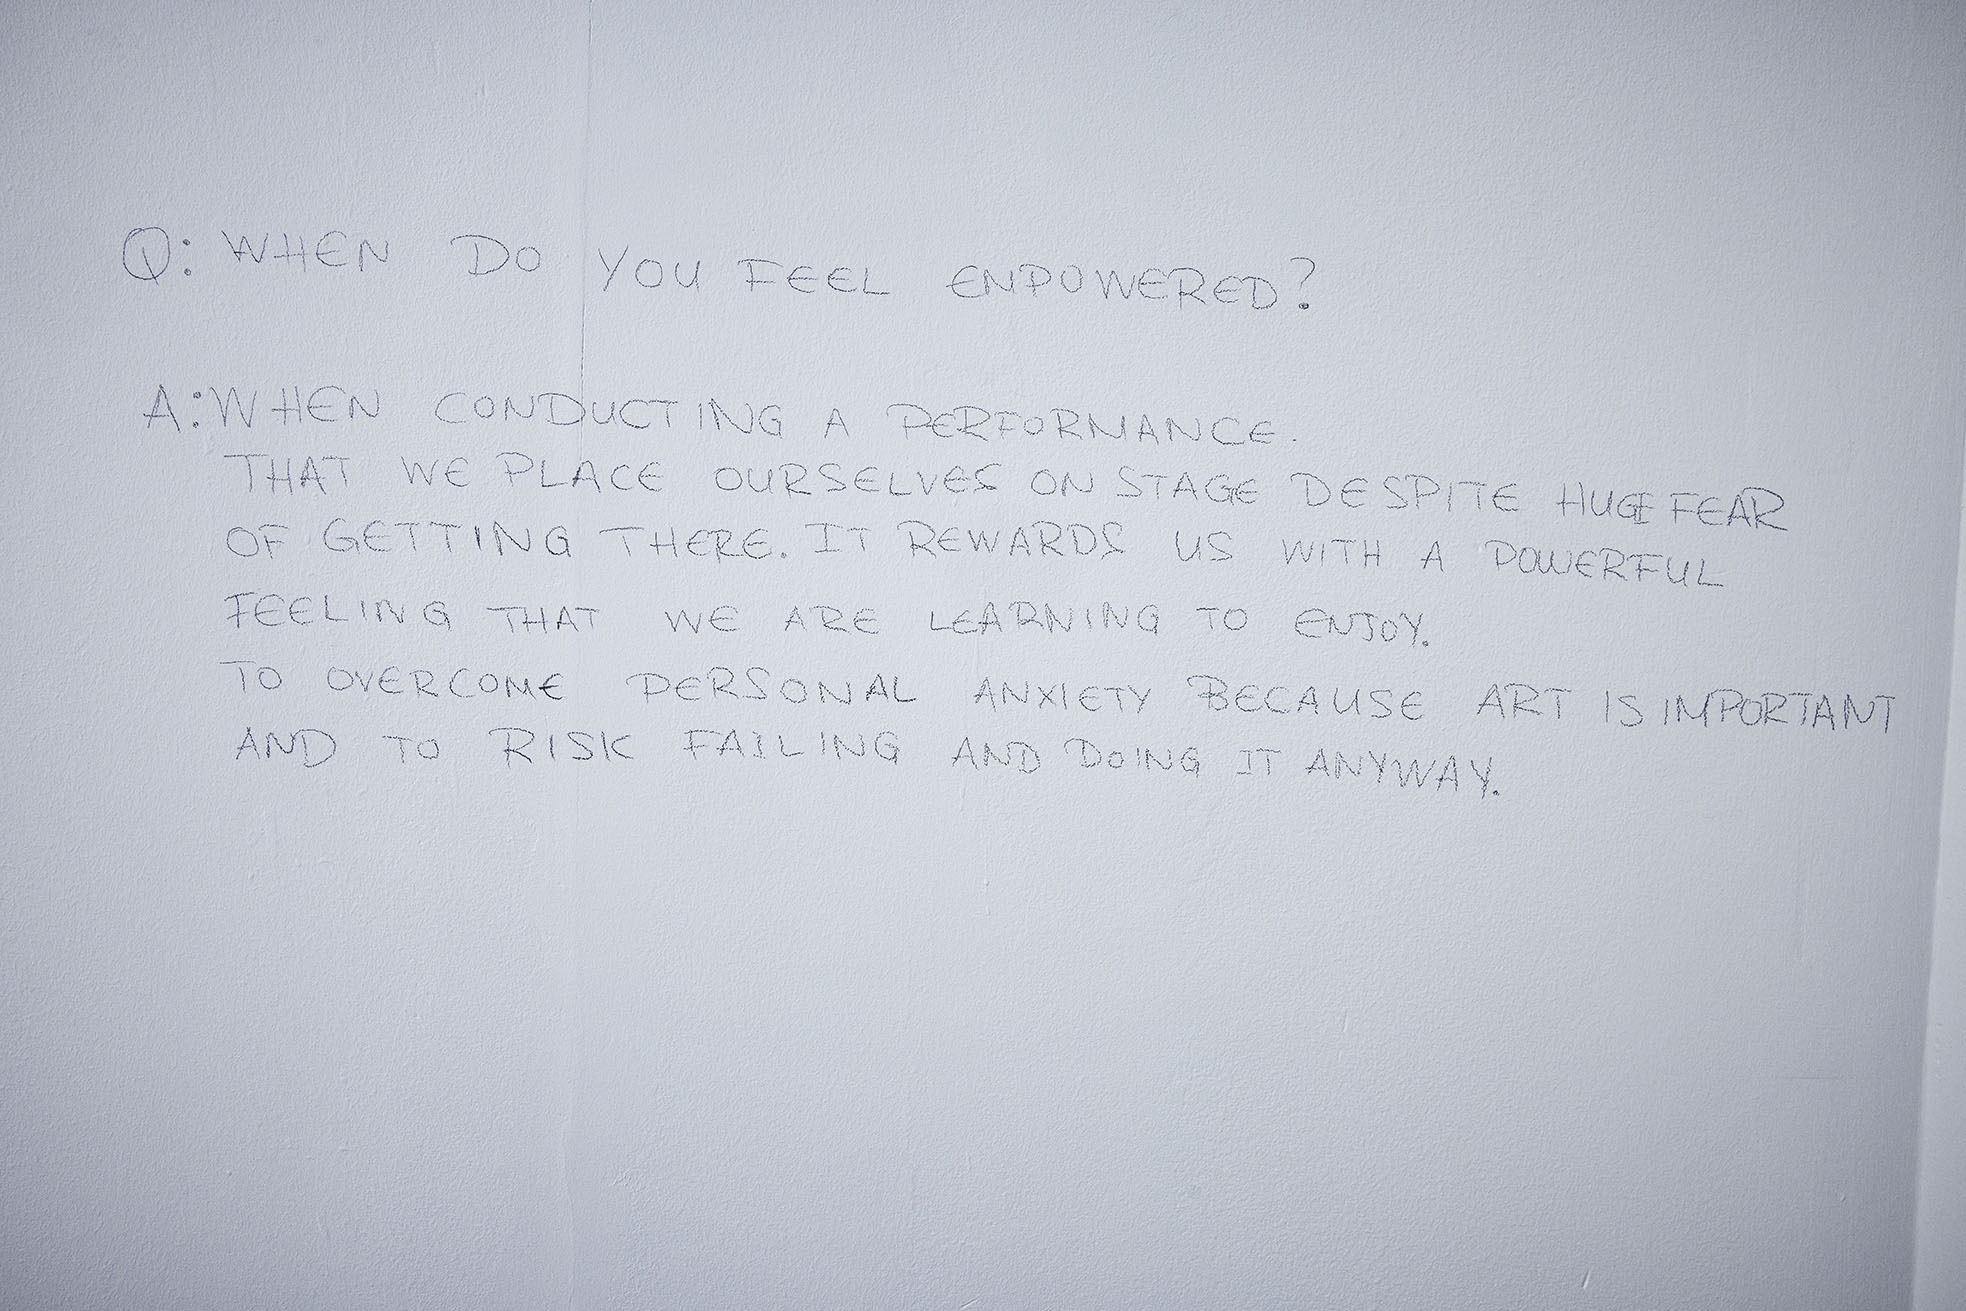 Q: WHEN DO YOU FEEL EMPOWERED?
A: WHEN CONDUCTING A PERFORMANCE.
THAT WE PLACE OURSELVES ON STAGE DESPITE HUGE FEAR
OF GETTING THERE. IT REWARDS US WITH A POWERFUL
FEELING THAT WE ARE LEARNING TO ENJOY.
TO OVERCOME PERSONAL ANXIETY BECAUSE ART IS IMPORTANT
AND TO RISK FAILING AND DOING IT ANYWAY.